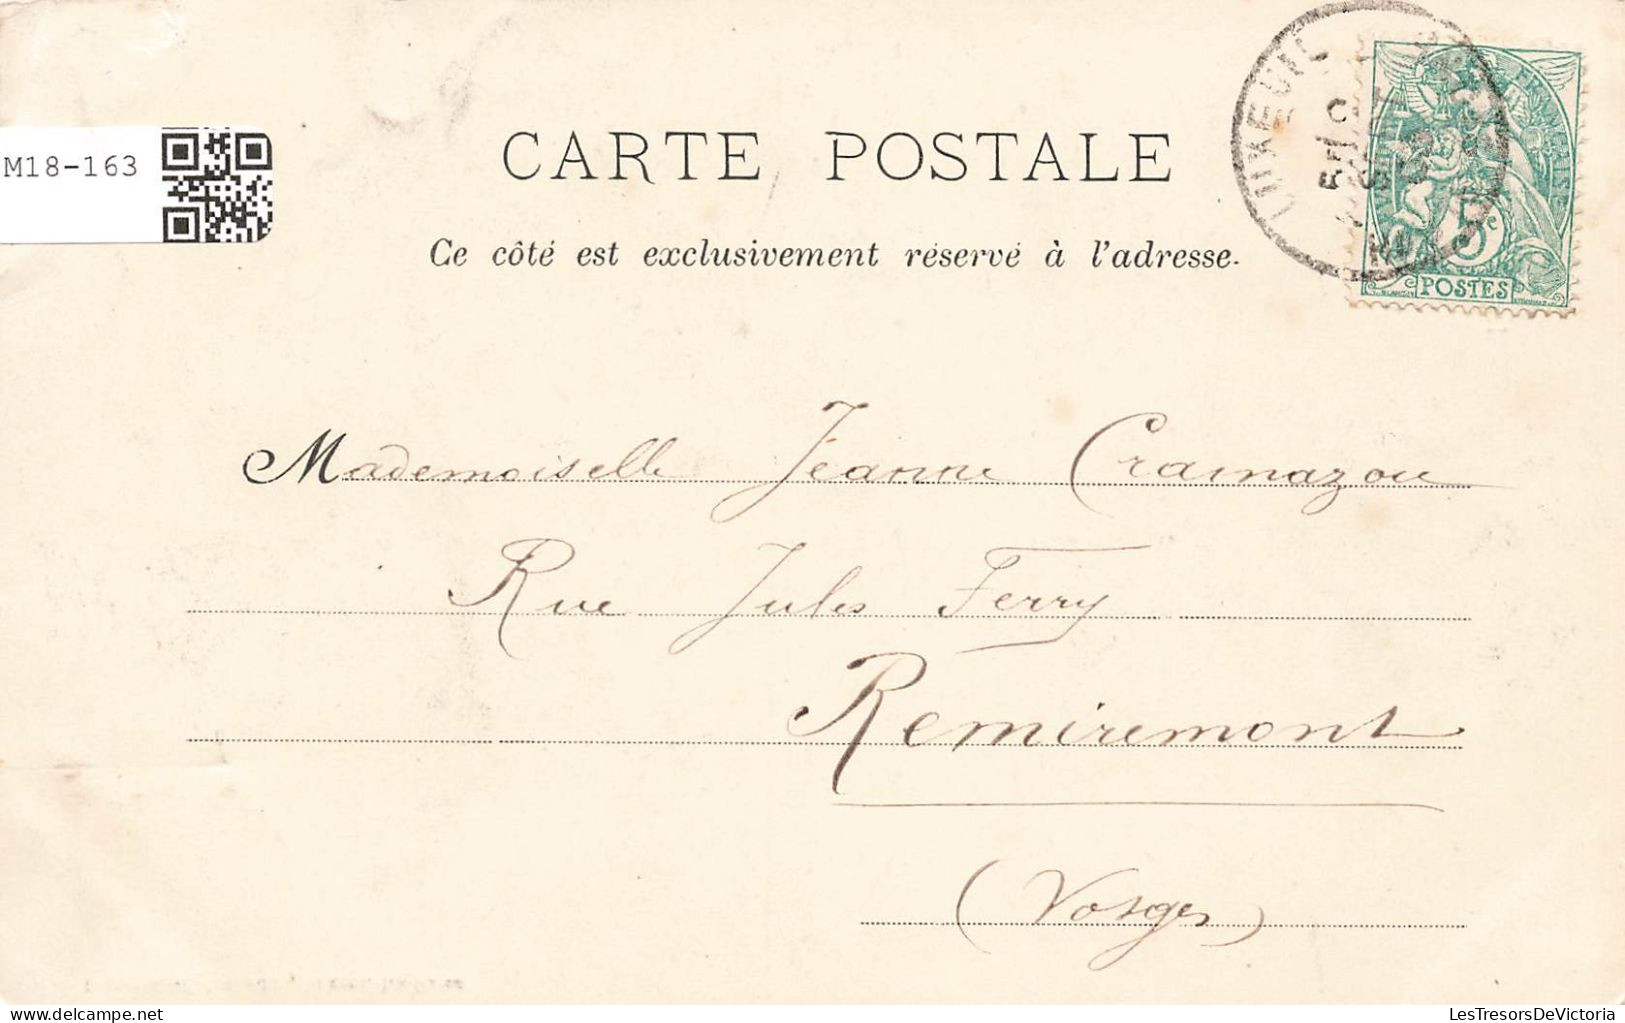 M18-163
CARTE POSTALE
Ce côté est exclusivement réservé à l'adresse.
5c
POSTES
Mademoiselle Jeanne Cramazou
Rue Jules Ferry
Remiremont
(Vosges)
delcampe.net
LesTresorsDeVictoria